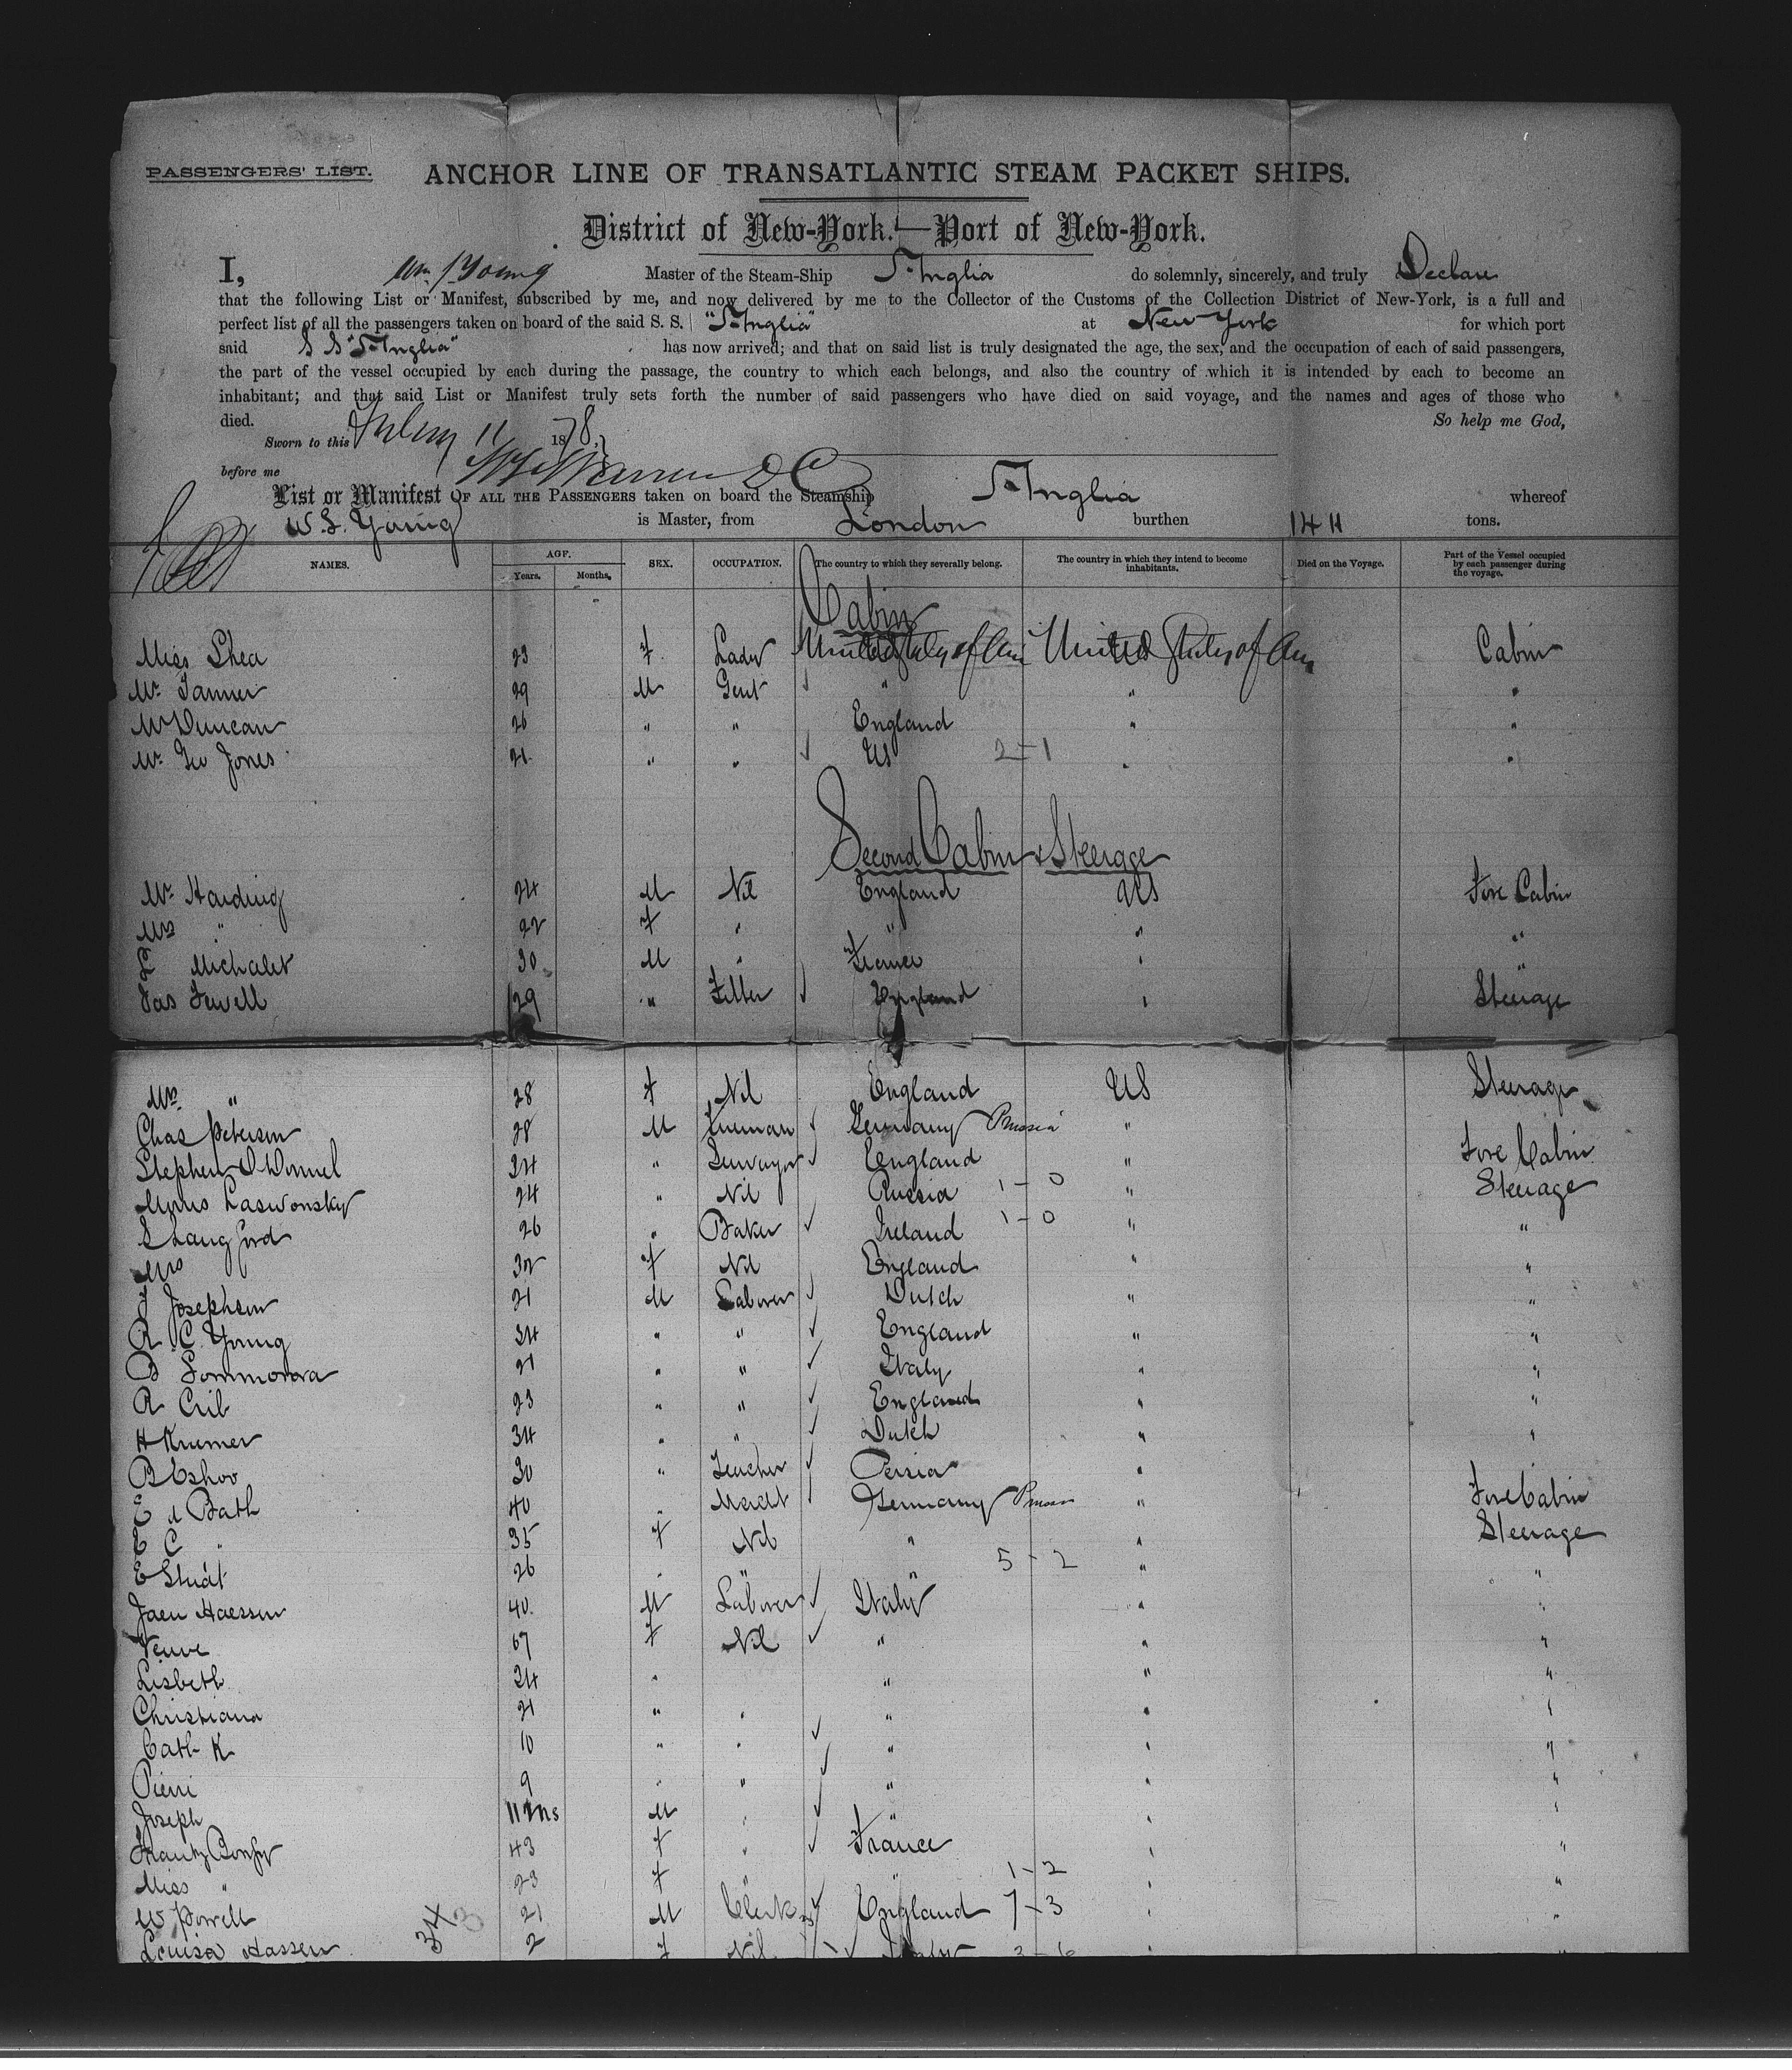 PASSENGERS' LIST.
ANCHOR LINE OF TRANSATLANTIC STEAM PACKET SHIPS.
District of New-York.—Port of New-York.
I, Wm Young Master of the Steam-Ship Anglia do solemnly, sincerely, and truly Declare
that the following List or Manifest, subscribed by me, and now delivered by me to the Collector of the Customs of the Collection District of New-York, is a full and
perfect list of all the passengers taken on board of the said S. S. "Anglia" at New York for which port
said S S "Anglia" has now arrived; and that on said list is truly designated the age, the sex, and the occupation of each of said passengers,
the part of the vessel occupied by each during the passage, the country to which each belongs, and also the country of which it is intended by each to become an
inhabitant; and that said List or Manifest truly sets forth the number of said passengers who have died on said voyage, and the names and ages of those who
died. So help me God,
Sworn to this 11 1878,
before me
List or Manifest OF ALL THE PASSENGERS taken on board the Steamship Anglia whereof
W. S. Young is Master, from London burthen tons.
NAMES. AGE. Years. Months. SEX. OCCUPATION. The country to which they severally belong. The country in which they intend to become inhabitants. Died on the Voyage. Part of the Vessel occupied by each passenger during the voyage.
Cabin
Miss Shea 23 F Lady United States of Am United States of Am Cabin
Mr Tanner 29 M Gent " " "
Mr Duncan 26 " " England " "
Mr Geo Jones 21 " " US 2-1 " "
Second Cabin & Steerage
Mr Harding 24 M Nil England US Fore Cabin
Mrs " 22 F " " " "
L Michalet 30 M " France " "
Jas Fewell 29 " Fitter England " Steerage
Mrs " 28 F Nil England US Steerage
Chas Petersen 28 M Fireman Germany Prussia " "
Stephen O'Donnel 34 " Surveyor England " Fore Cabin
Laswonsky 24 " Nil Russia 1-0 " Steerage
S Langford 26 " Baker Ireland 1-0 " "
Mrs 32 F Nil England " "
J Josephsen 21 M Laborer Dutch " "
R C Young 34 " " England " "
21 " " Italy " "
R Crib 23 " " England " "
H Kremer 34 " " Dutch " "
B Eshoo 30 " Teacher Persia "
E d Bath 40 " Mercht Germany Pruss " Fore Cabin
E C " 35 F Nil " " Steerage
E Studt 26 " " " 5-2 " "
Jaen Haessen 40 M Laborer Italy " "
Veuve 67 F Nil " " "
Lisbeth 24 " " " "
Christiana 21 " " " " "
Cath K 10 " " " " "
Pierri 9 " " " " "
Joseph 11 Ms M " " " "
43 F " France " "
Miss " 23 F " " 1-2 " "
W Powell 21 M Clerk England 7-3 " "
34
Louisa Hassen 2 F Nil 3-6 " "